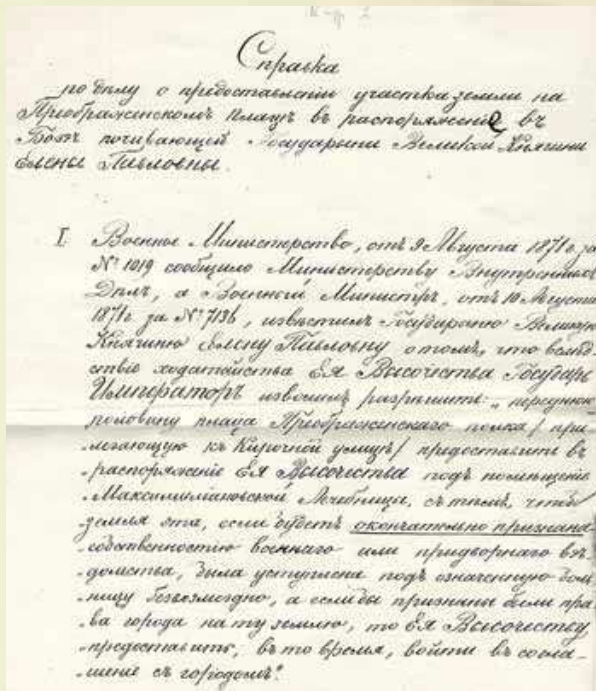 Справка
по дѣлу о предоставленіи участка земли на
Преображенскомъ плацѣ въ распоряженіе въ
Бозѣ почивающей Государыни Великой Княгини
Елены Павловны.
I. Военное Министерство, отъ 9 Августа 1871 г. за
№ 1019 сообщило Министерству Внутреннихъ
Дѣлъ, а Военный Министръ, отъ 10 Августа
1871 г. за № 7136, извѣстилъ Государыню Великую
Княгиню Елену Павловну о томъ, что вслѣд-
ствіе ходатайства Ея Высочества Государь
Императоръ изволилъ разрѣшить: „переднюю
половину плаца Преображенскаго полка /при-
легающую къ Кирочной улицѣ/ предоставить въ
распоряженіе Ея Высочества подъ помѣщеніе
Максимиліановской Лечебницы, съ тѣмъ, чтобы
земля эта, если будетъ окончательно признана
собственностію военнаго или придворнаго вѣ-
домства, была уступлена подъ означенную боль-
ницу безвозмездно, а если бы признаны были пра-
ва города на ту землю, то Ея Высочеству
предоставить, въ то время, войти въ согла-
шеніе съ городомъ".